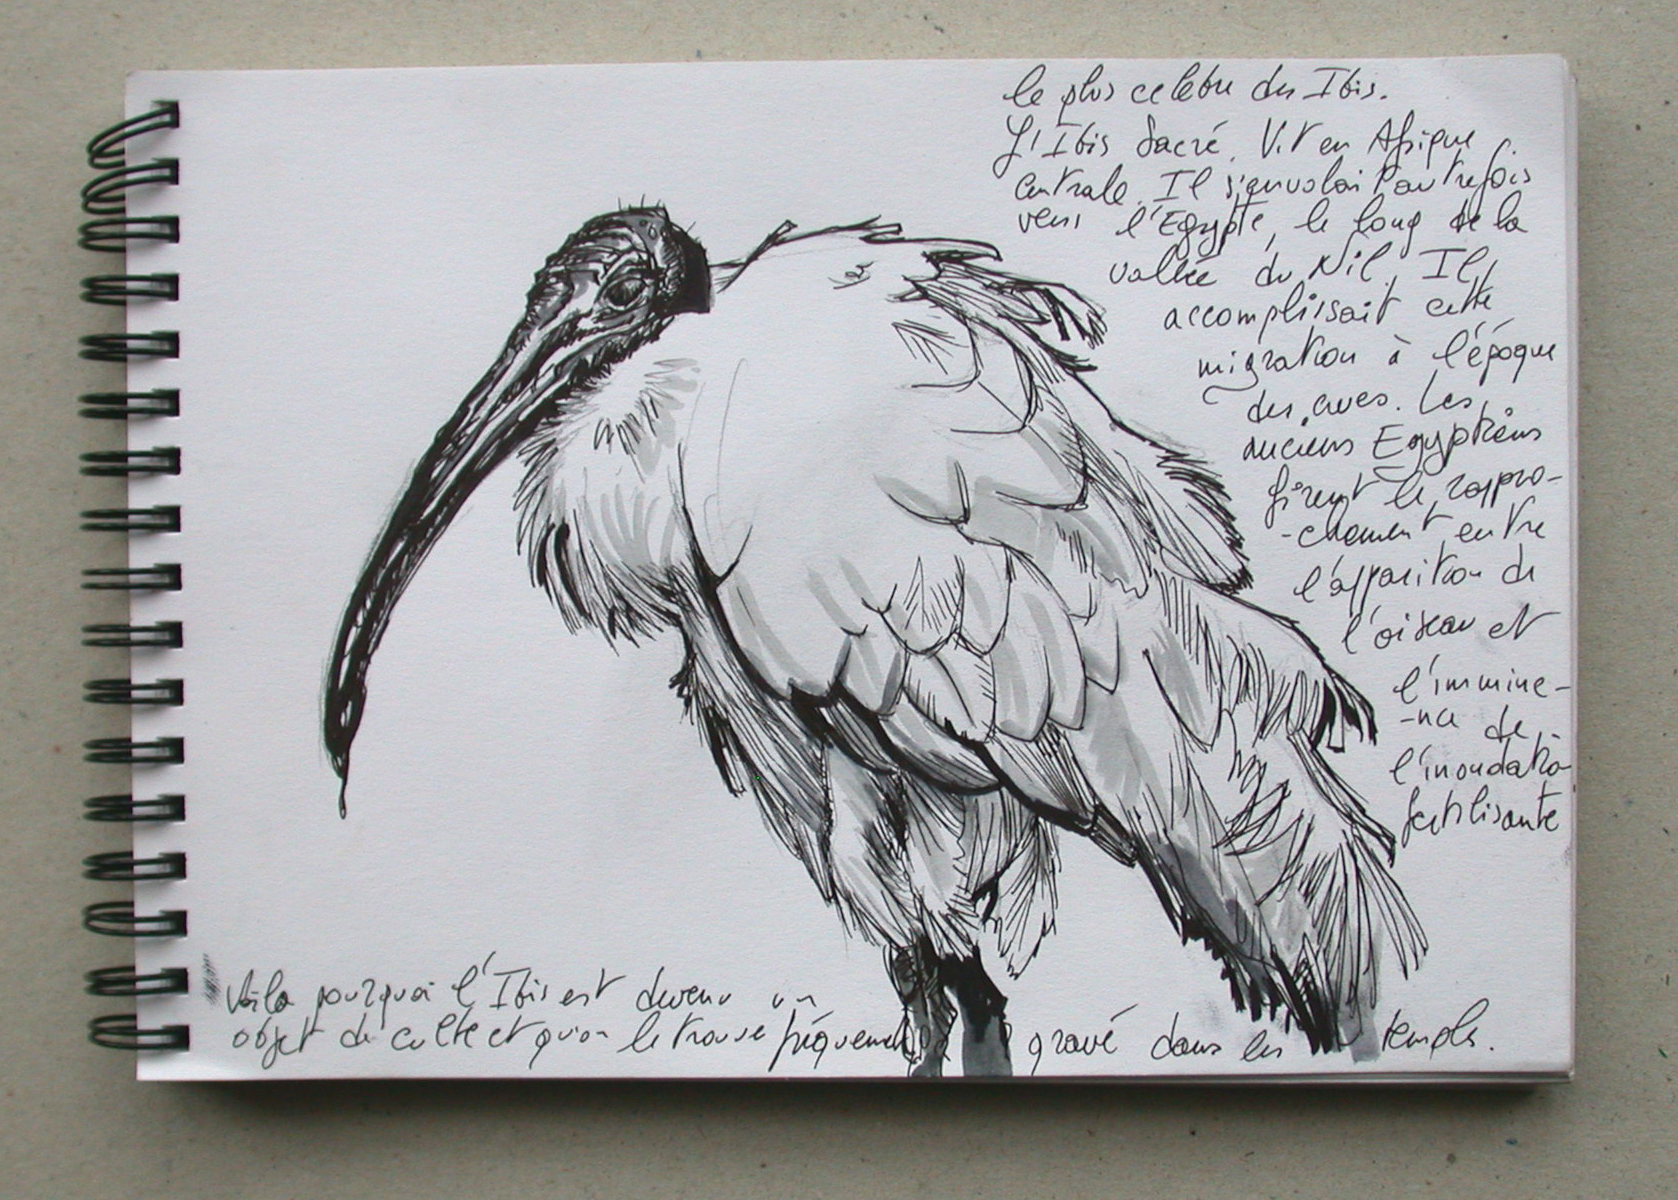 le plus celebre des Ibis.
L'Ibis Sacré. Vit en Afrique
centrale. Il s'envolait autrefois
vers l'Egypte, le long de la
vallée du Nil. Il
accomplissait cette
migration à l'époque
des crues. Les
anciens Egyptiens
firent le rappro-
-chement entre
l'apparition de
l'oiseau et
l'immine-
-nce de
l'inondation
fertilisante
Voila pourquoi l'Ibis est devenu un
objet de culte et qu'on le trouve fréquemment gravé dans les temples.